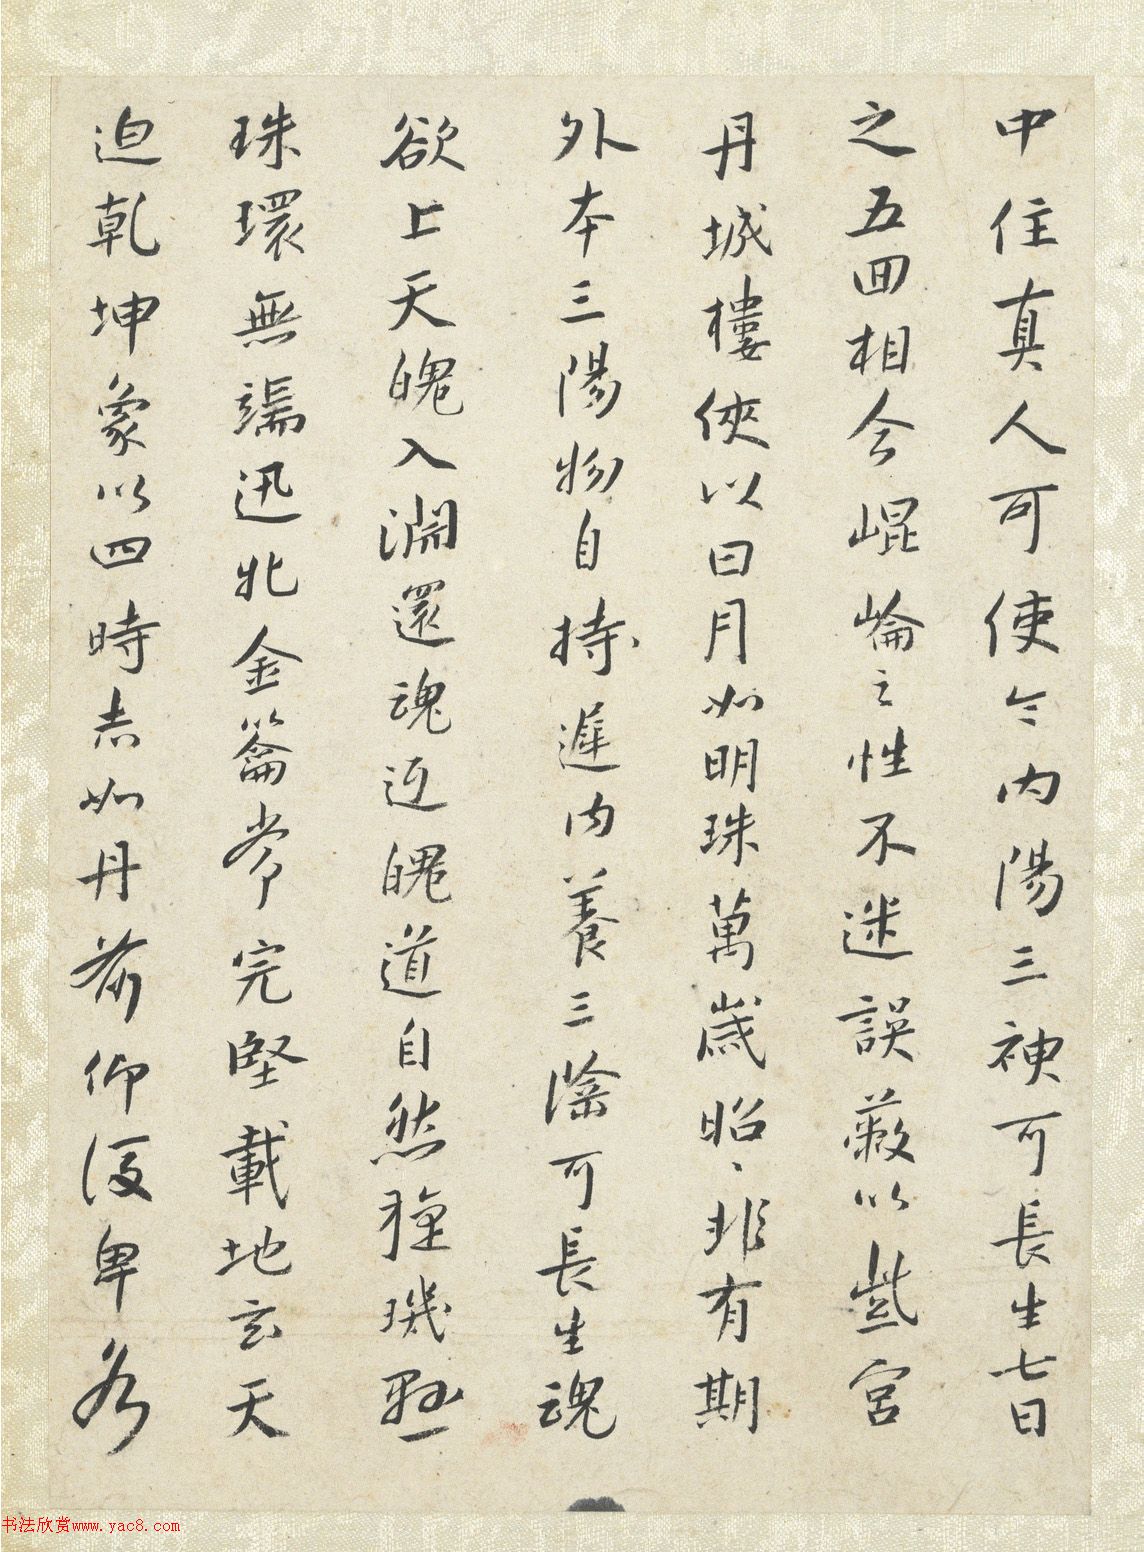 中住真人可使令內陽三神可長生七日
之五回相合崐崘之性不迷誤蔽以紫宮
丹城樓俠以日月如明珠萬歲昭〻非有期
外本三陽物自持遲內養三陰可長生魂
欲上天魄入淵還魂返魄道自然璇璣懸
珠環無端迅牝金籥常完堅載地玄天
迫乾坤象以四時赤如丹前仰後卑各
书法欣赏www.yac8.com